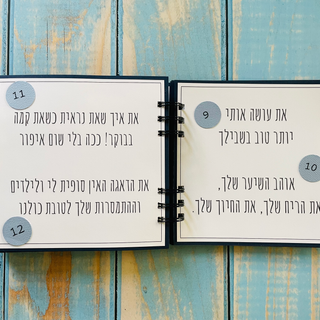 9
את עושה אותי
יותר טוב בשבילך
10
אוהב השיער שלך,
את הריח שלך, את החיוך שלך.
11
את איך שאת נראית כשאת קמה
בבוקר! ככה בלי שום איפור
את הדאגה האין סופית לי ולילדים
וההתמסרות שלך לטובת כולנו
12